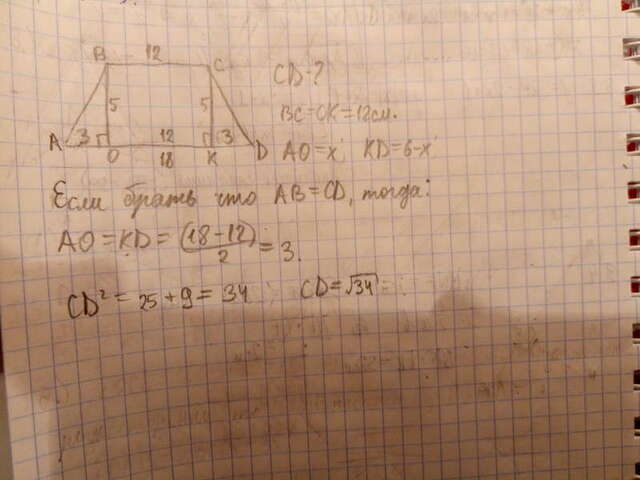 B 12 C
CD-?
5 5
BC=OK=12см.
A 3 12 3 D
O 18 K
AO=x; KD=6-x
Если брать что AB=CD, тогда:
AO=KD= (18-12)/2 = 3.
CD² = 25+9= 34 CD=√34